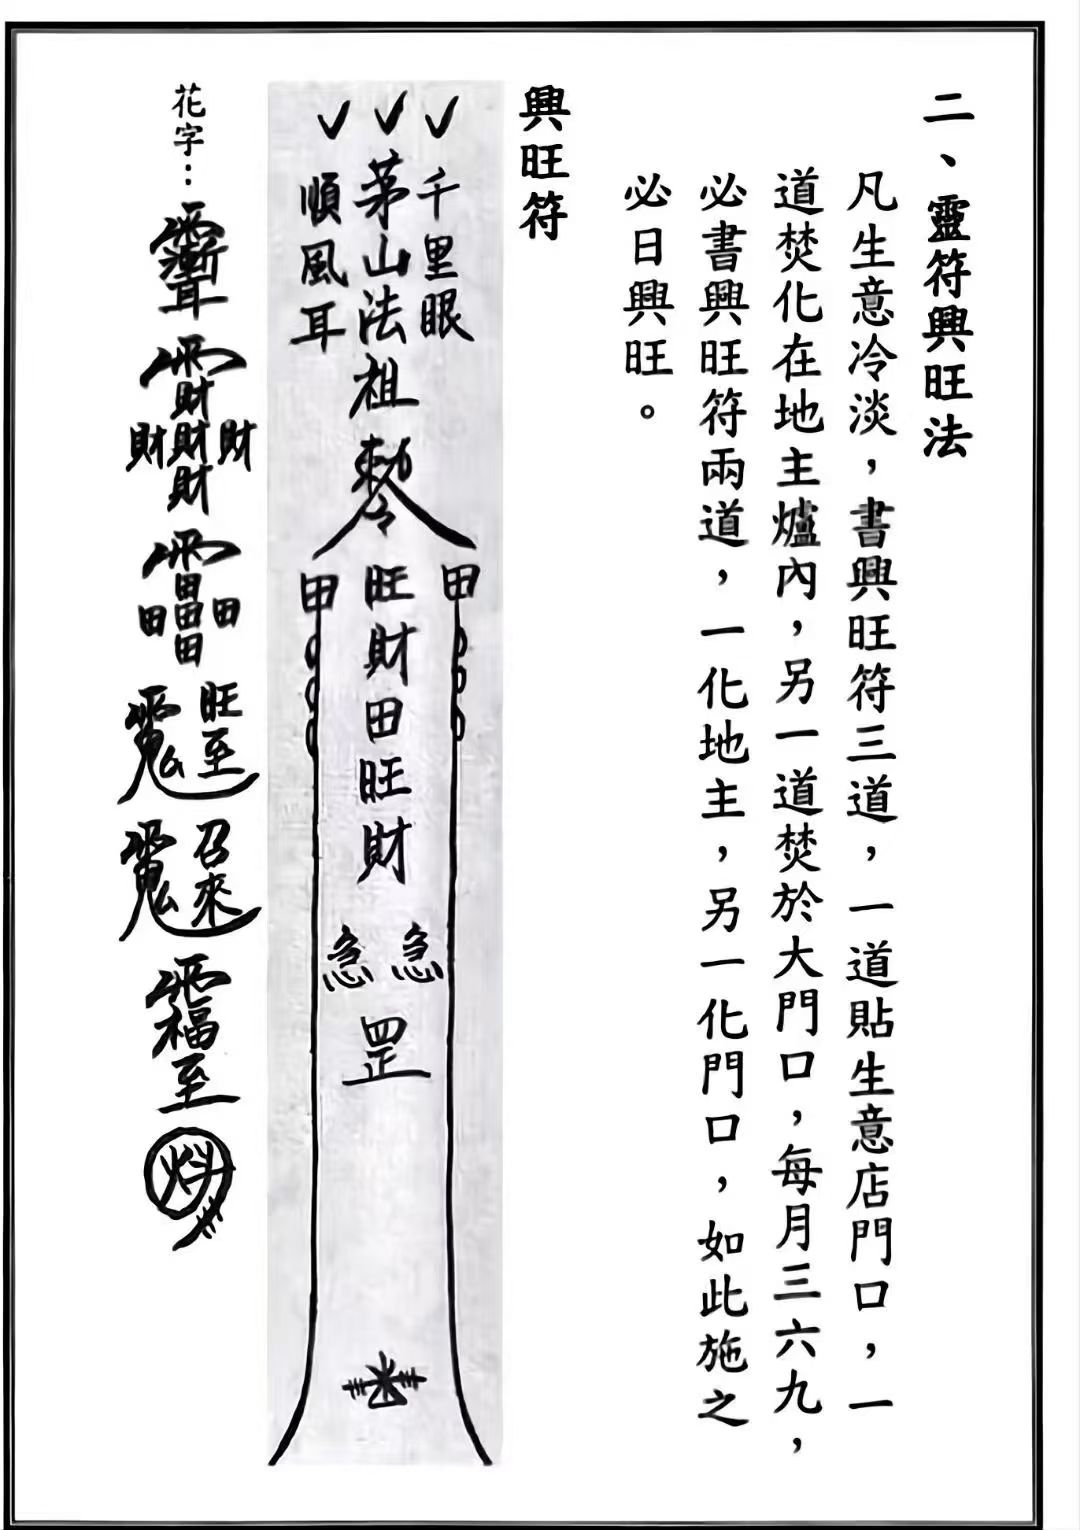 二、靈符興旺法
凡生意冷淡，書興旺符三道，一道貼生意店門口，一
道焚化在地主爐內，另一道焚於大門口，每月三六九，
必書興旺符兩道，一化地主，另一化門口，如此施之
必日興旺。
興旺符
千里眼
茅山法祖
順風耳
甲
旺財田旺財
甲
急急
罡
花字：
財
財財財
財
田
田田田
田
旺至
召來
福至